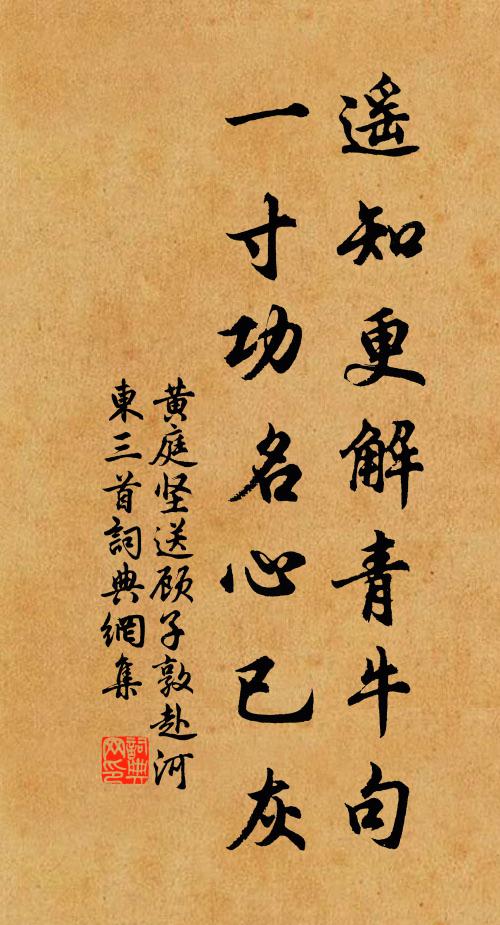 遥知更解青牛句
一寸功名心已灰
黄庭坚送顾子敦赴河
東三首詞典網集
詞典
网印